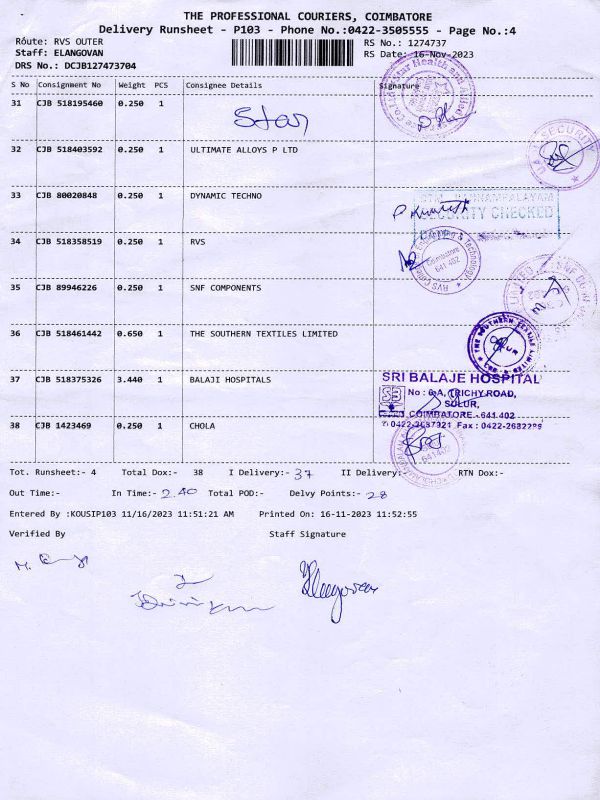 THE PROFESSIONAL COURIERS, COIMBATORE
Delivery Runsheet - P103 - Phone No.:0422-3505555 - Page No.:4
Route: RVS OUTER RS No.: 1274737
Staff: ELANGOVAN RS Date: 16-Nov-2023
DRS No.: DCJB127473704
S No Consignment No Weight PCS Consignee Details Signature
31 CJB 518195460 0.250 1 Star
32 CJB 518403592 0.250 1 ULTIMATE ALLOYS P LTD
SECURITY
33 CJB 80020848 0.250 1 DYNAMIC TECHNO
SECURITY CHECKED
34 CJB 518358519 0.250 1 RVS
Coimbatore
641 402
35 CJB 89946226 0.250 1 SNF COMPONENTS
36 CJB 518461442 0.650 1 THE SOUTHERN TEXTILES LIMITED
SULUR
37 CJB 518375326 3.440 1 BALAJI HOSPITALS
SRI BALAJE HOSPITAL
No : 6-A, TRICHY ROAD,
SULUR,
COIMBATORE - 641 402
0422-2687921 Fax : 0422-2682299
38 CJB 1423469 0.250 1 CHOLA
641402
Tot. Runsheet:- 4 Total Dox:- 38 I Delivery:- 37 II Delivery:- RTN Dox:-
Out Time:- In Time:- 2.40 Total POD:- Delvy Points:- 28
Entered By :KOUSIP103 11/16/2023 11:51:21 AM Printed On: 16-11-2023 11:52:55
Verified By Staff Signature
Elangovan